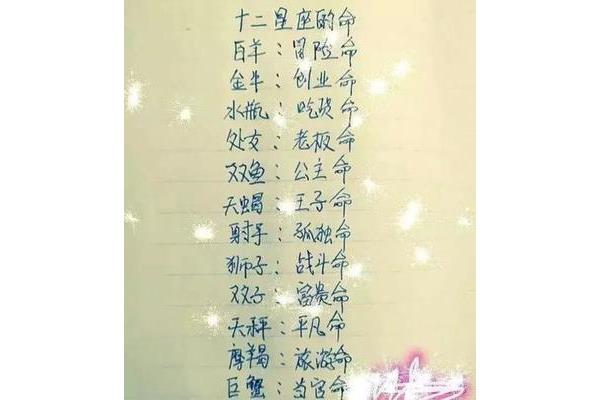 十二星座的命
白羊：冒险命
金牛：创业命
水瓶：吃货命
处女：老板命
双鱼：公主命
天蝎：王子命
射手：孤独命
狮子：战斗命
双子：富贵命
天秤：平凡命
摩羯：旅游命
巨蟹：当官命